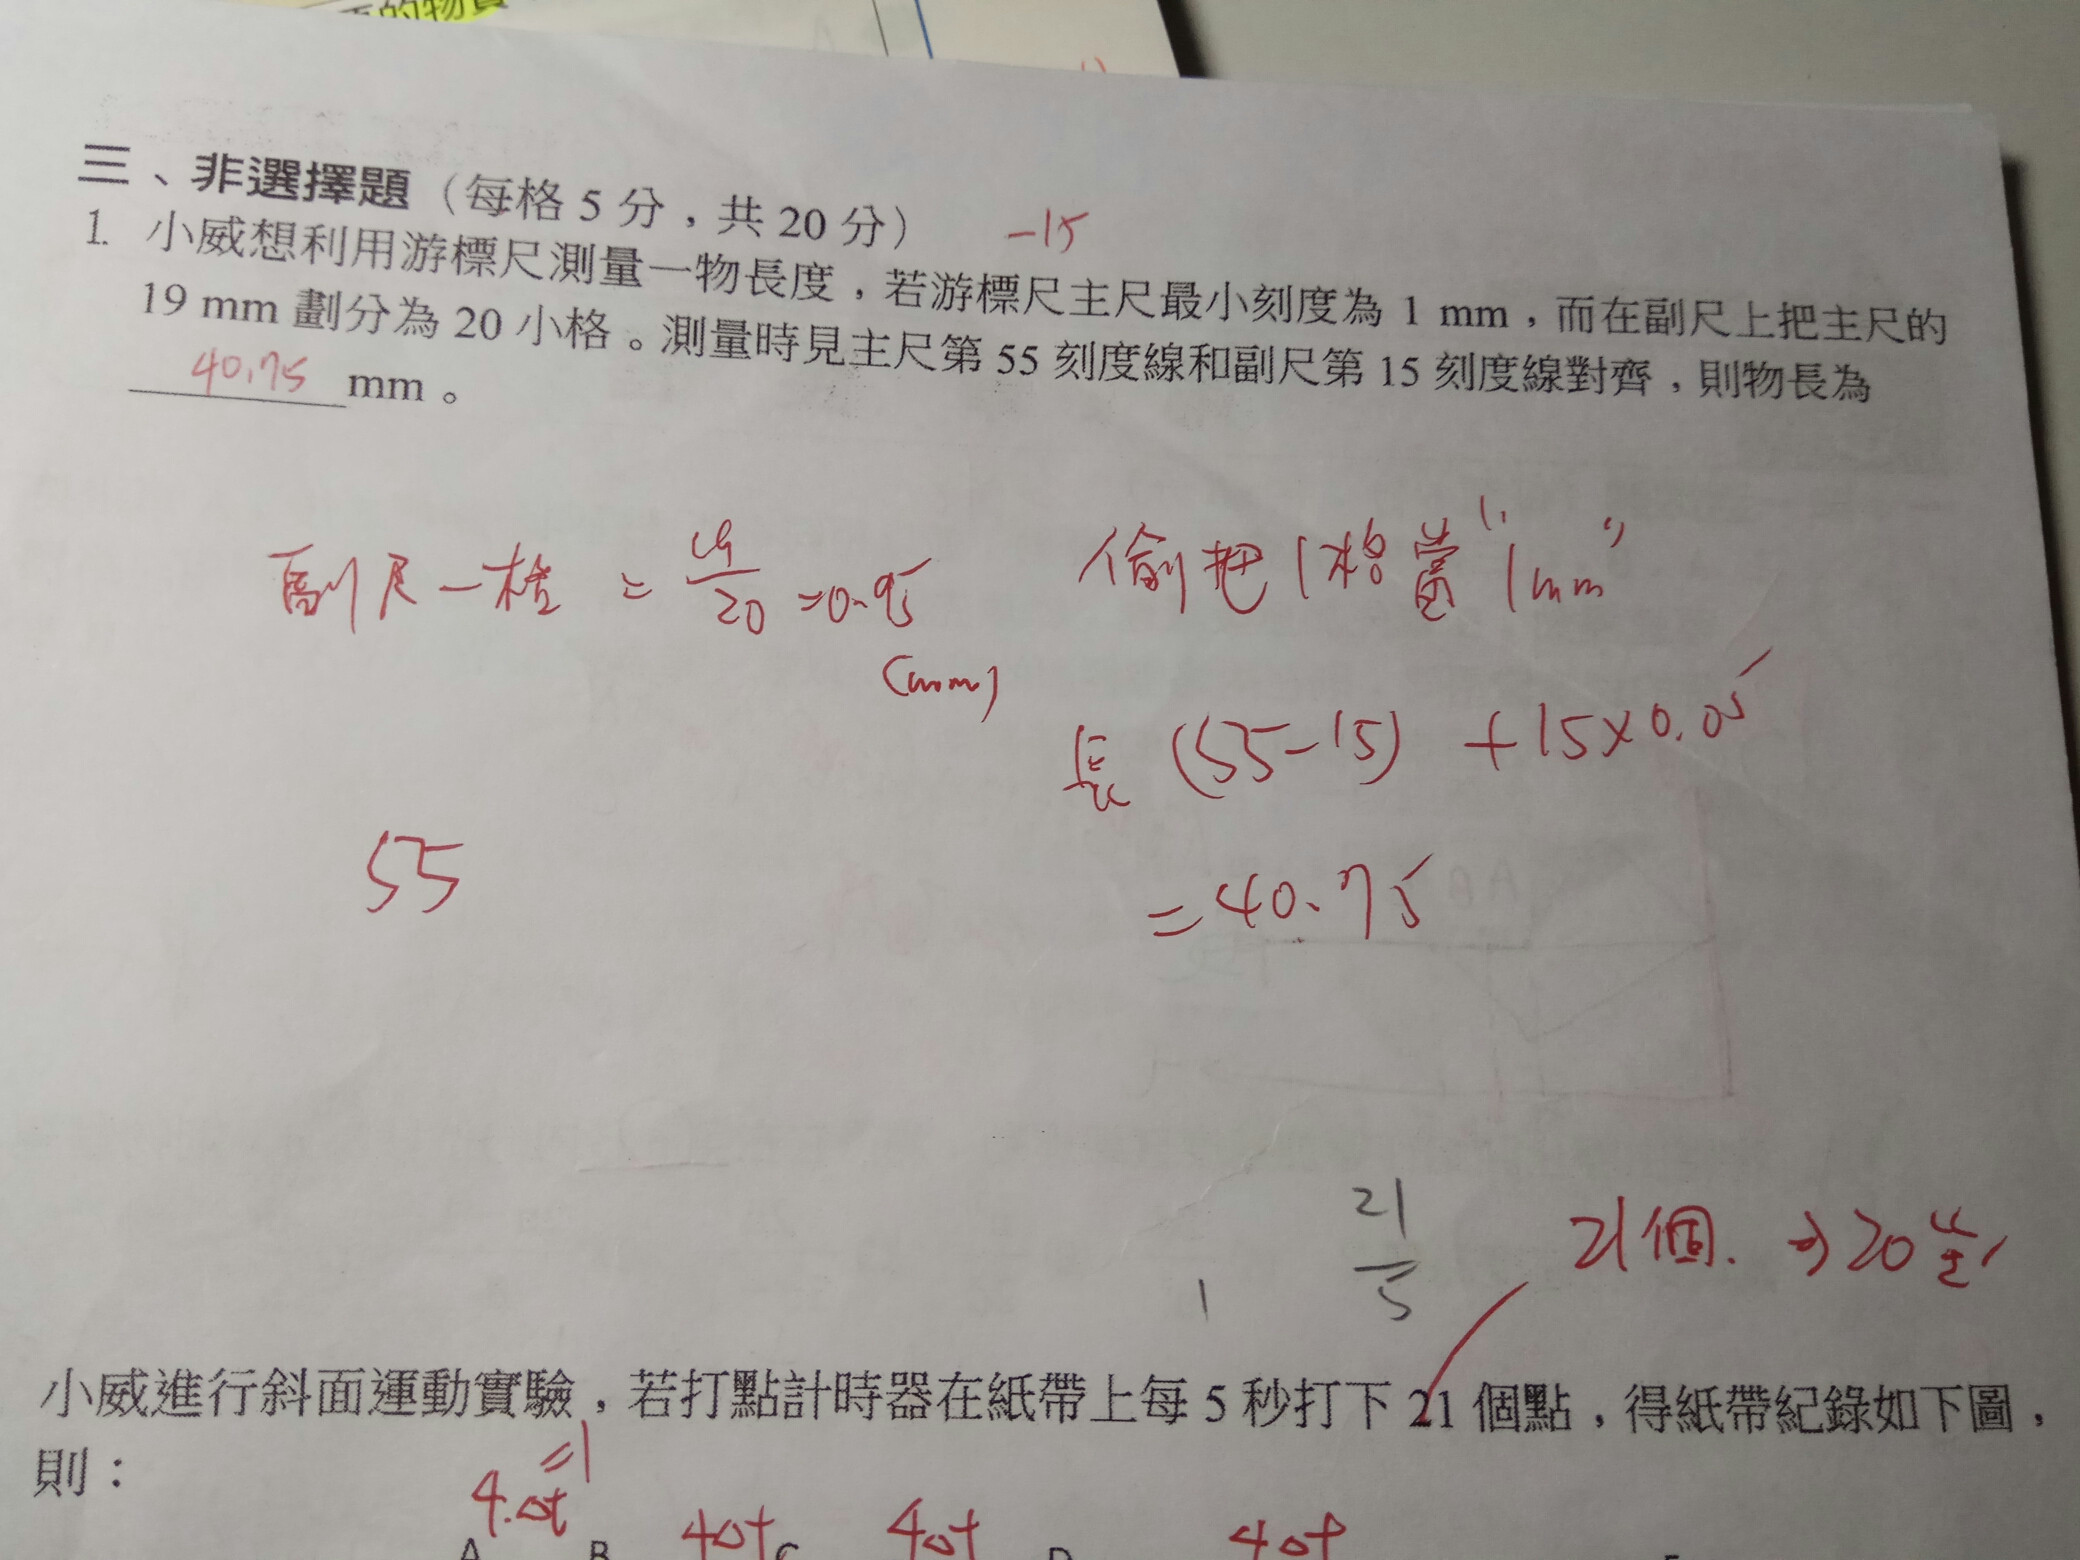 的物質
三、非選擇題（每格 5 分，共 20 分）
-15
1. 小威想利用游標尺測量一物長度，若游標尺主尺最小刻度為 1 mm，而在副尺上把主尺的
19 mm 劃分為 20 小格。測量時見主尺第 55 刻度線和副尺第 15 刻度線對齊，則物長為
40.75 mm。
副尺一格 = 19/20 = 0.95
(mm)
偷把1格當"1mm"
長 (55-15) + 15×0.05
= 40.75
55
21/5
1
21個. → 20
小威進行斜面運動實驗，若打點計時器在紙帶上每 5 秒打下 21 個點，得紙帶紀錄如下圖，
則：
=1
4.Δt 4Δt 4Δt 4Δt
A B C D